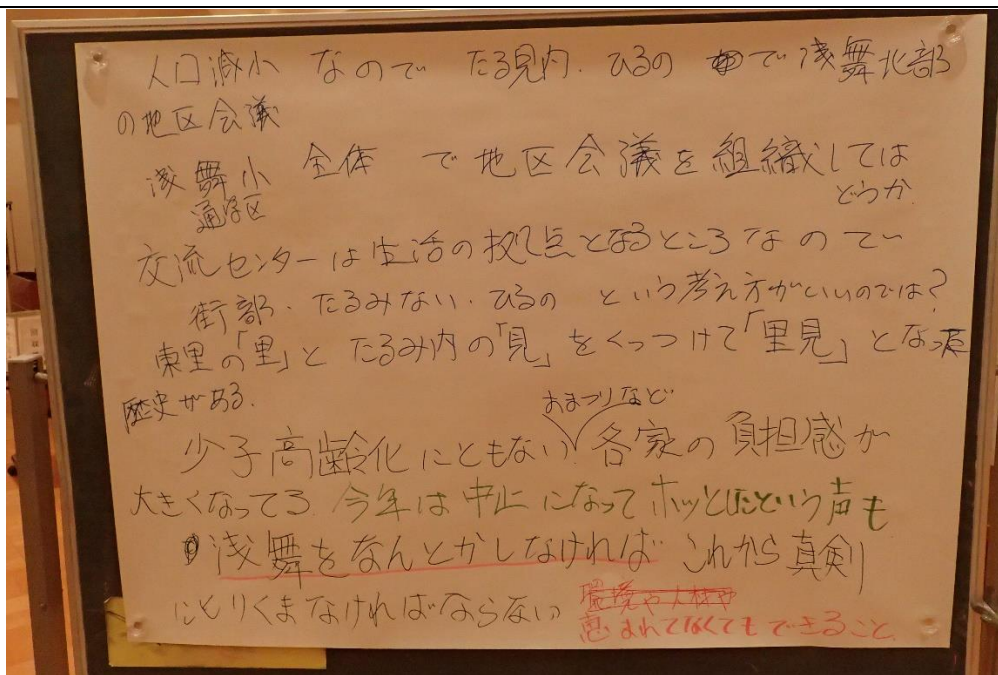 人口減小 なので たる見内. ひるの で 浅舞北部
の地区会議
浅舞小 全体 で地区会議を組織しては
通学区 どうか.
交流センターは生活の拠点となるところなので
街部・たるみない・ひるの という考え方がいいのでは?
東里の「里」と たるみ内の「見」をくっつけて「里見」となった
歴史がある.
おまつりなど
少子高齢化にともない 各家の負担感が
大きくなってる. 今年は中止になってホッとしたという声も
浅舞をなんとかしなければ これから真剣
にとりくまなければならない 環境や人材や
恵まれてなくてもできること.